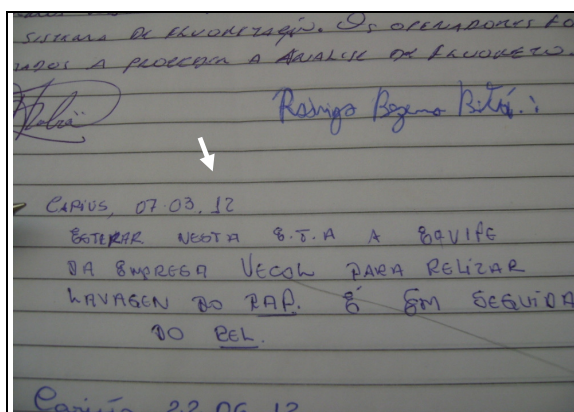 SISTEMA DE FLUORETAÇÃO. OS OPERADORES FO
A PROCEDER A ANALISE DE FLUORETO.
Rodrigo Bezerra
CARIUS, 07.03.12
ESTERAR NESTA E.T.A A EQUIPE
DA EMPRESA VECOL PARA RELIZAR
LAVAGEN DO RAP. E EM SEGUIDA
DO REL.
22 06 12